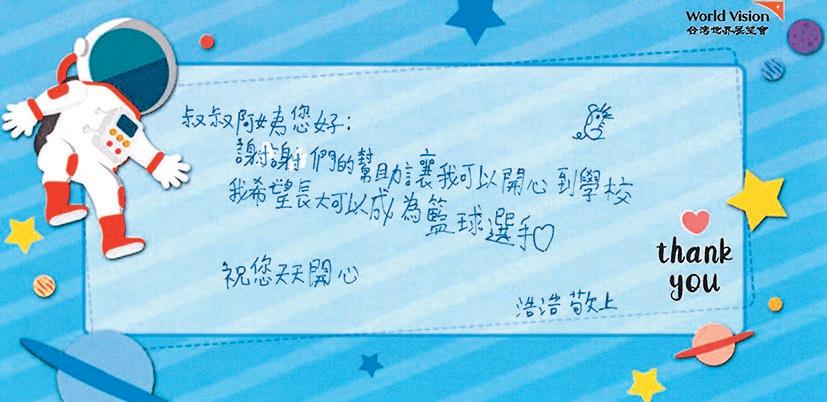 World Vision
台灣世界展望會
叔叔阿姨您好：
謝謝們的幫助讓我可以開心到學校
我希望長大可以成為籃球選手♡
祝您天天開心
浩浩敬上
thank
you